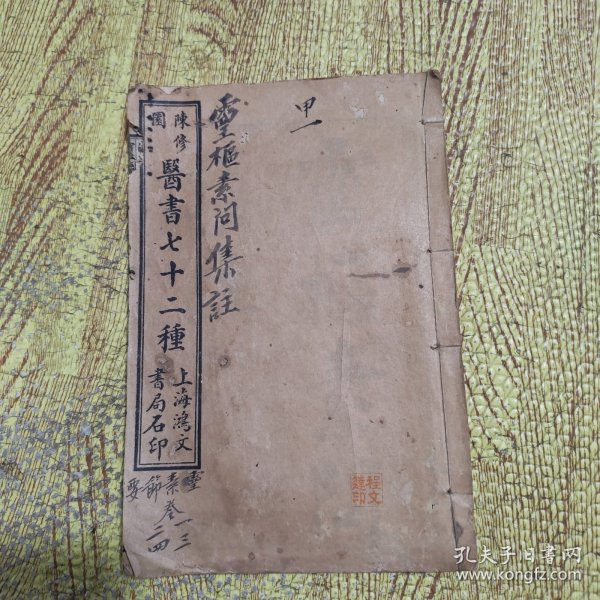 甲一
靈樞素問集註
陳修園
醫書七十二種
上海鴻文
書局石印
靈素節要
卷一二三四
程文
印
孔夫子旧書网
www.kongfz.com